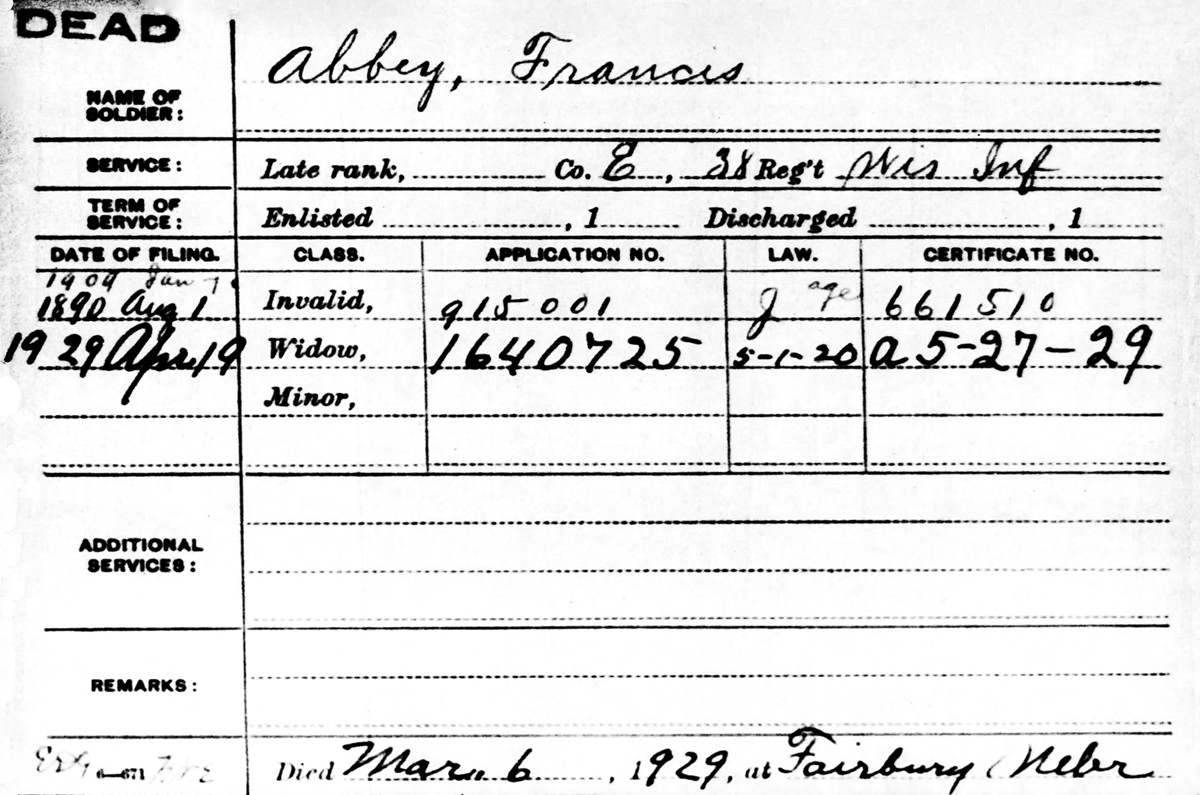 DEAD
Abbey, Francis
NAME OF
SOLDIER:
SERVICE: Late rank, Co. E, 38 Reg't Wis Inf
TERM OF
SERVICE: Enlisted , 1 Discharged , 1
DATE OF FILING. CLASS. APPLICATION NO. LAW. CERTIFICATE NO.
1909 Jan
1890 Aug 1 Invalid, 915001 J age 661510
1929 Apr. 19 Widow, 1640725 5-1-20 a 5-27-29
Minor,
ADDITIONAL
SERVICES:
REMARKS:
6-671 Died Mar. 6, 1929, at Fairbury Nebr